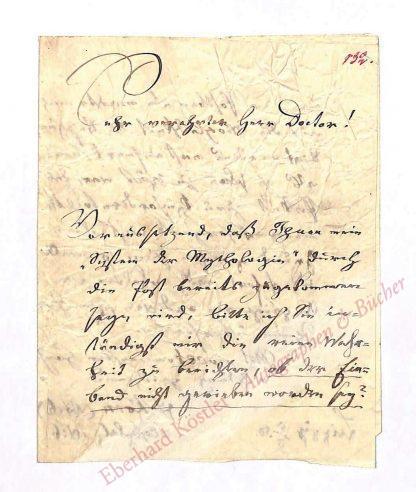 132.
Sehr verehrter Herr Doctor!
Voraussetzend, daß Ihnen mein
„System der Mythologie“, durch
die Post bereits zugekommen
seyn wird, bitte ich Sie in-
ständigst mir die reine Wahr-
heit zu berichten, ob der Ein-
band nicht gerieben worden sey?
Eberhard Köstler Autographen & Bücher